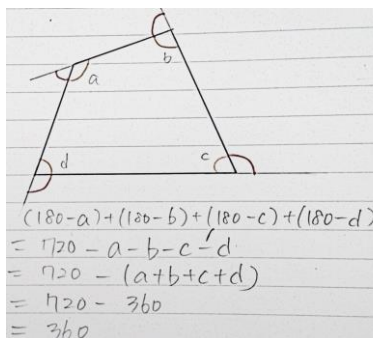 b
a
d
c
(180-a)+(180-b)+(180-c)+(180-d)
= 720-a-b-c-d
= 720-(a+b+c+d)
= 720-360
= 360